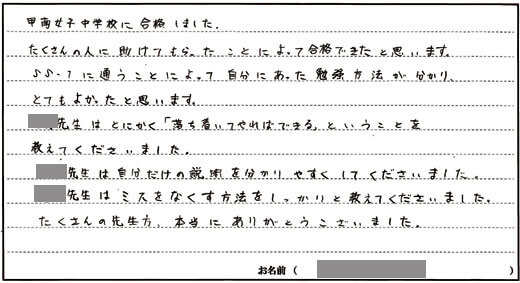 甲南女子中学校に合格しました。
たくさんの人に助けてもらったことによって合格できたと思います。
SS-1に通うことによって自分にあった勉強方法が分かり、
とてもよかったと思います。
先生はとにかく「落ち着いてやればできる」ということを
教えてくださいました。
先生は自分だけの説明を分かりやすくしてくださいました。
先生はミスをなくす方法をしっかりと教えてくださいました。
たくさんの先生方、本当にありがとうございました。
お名前（ ）